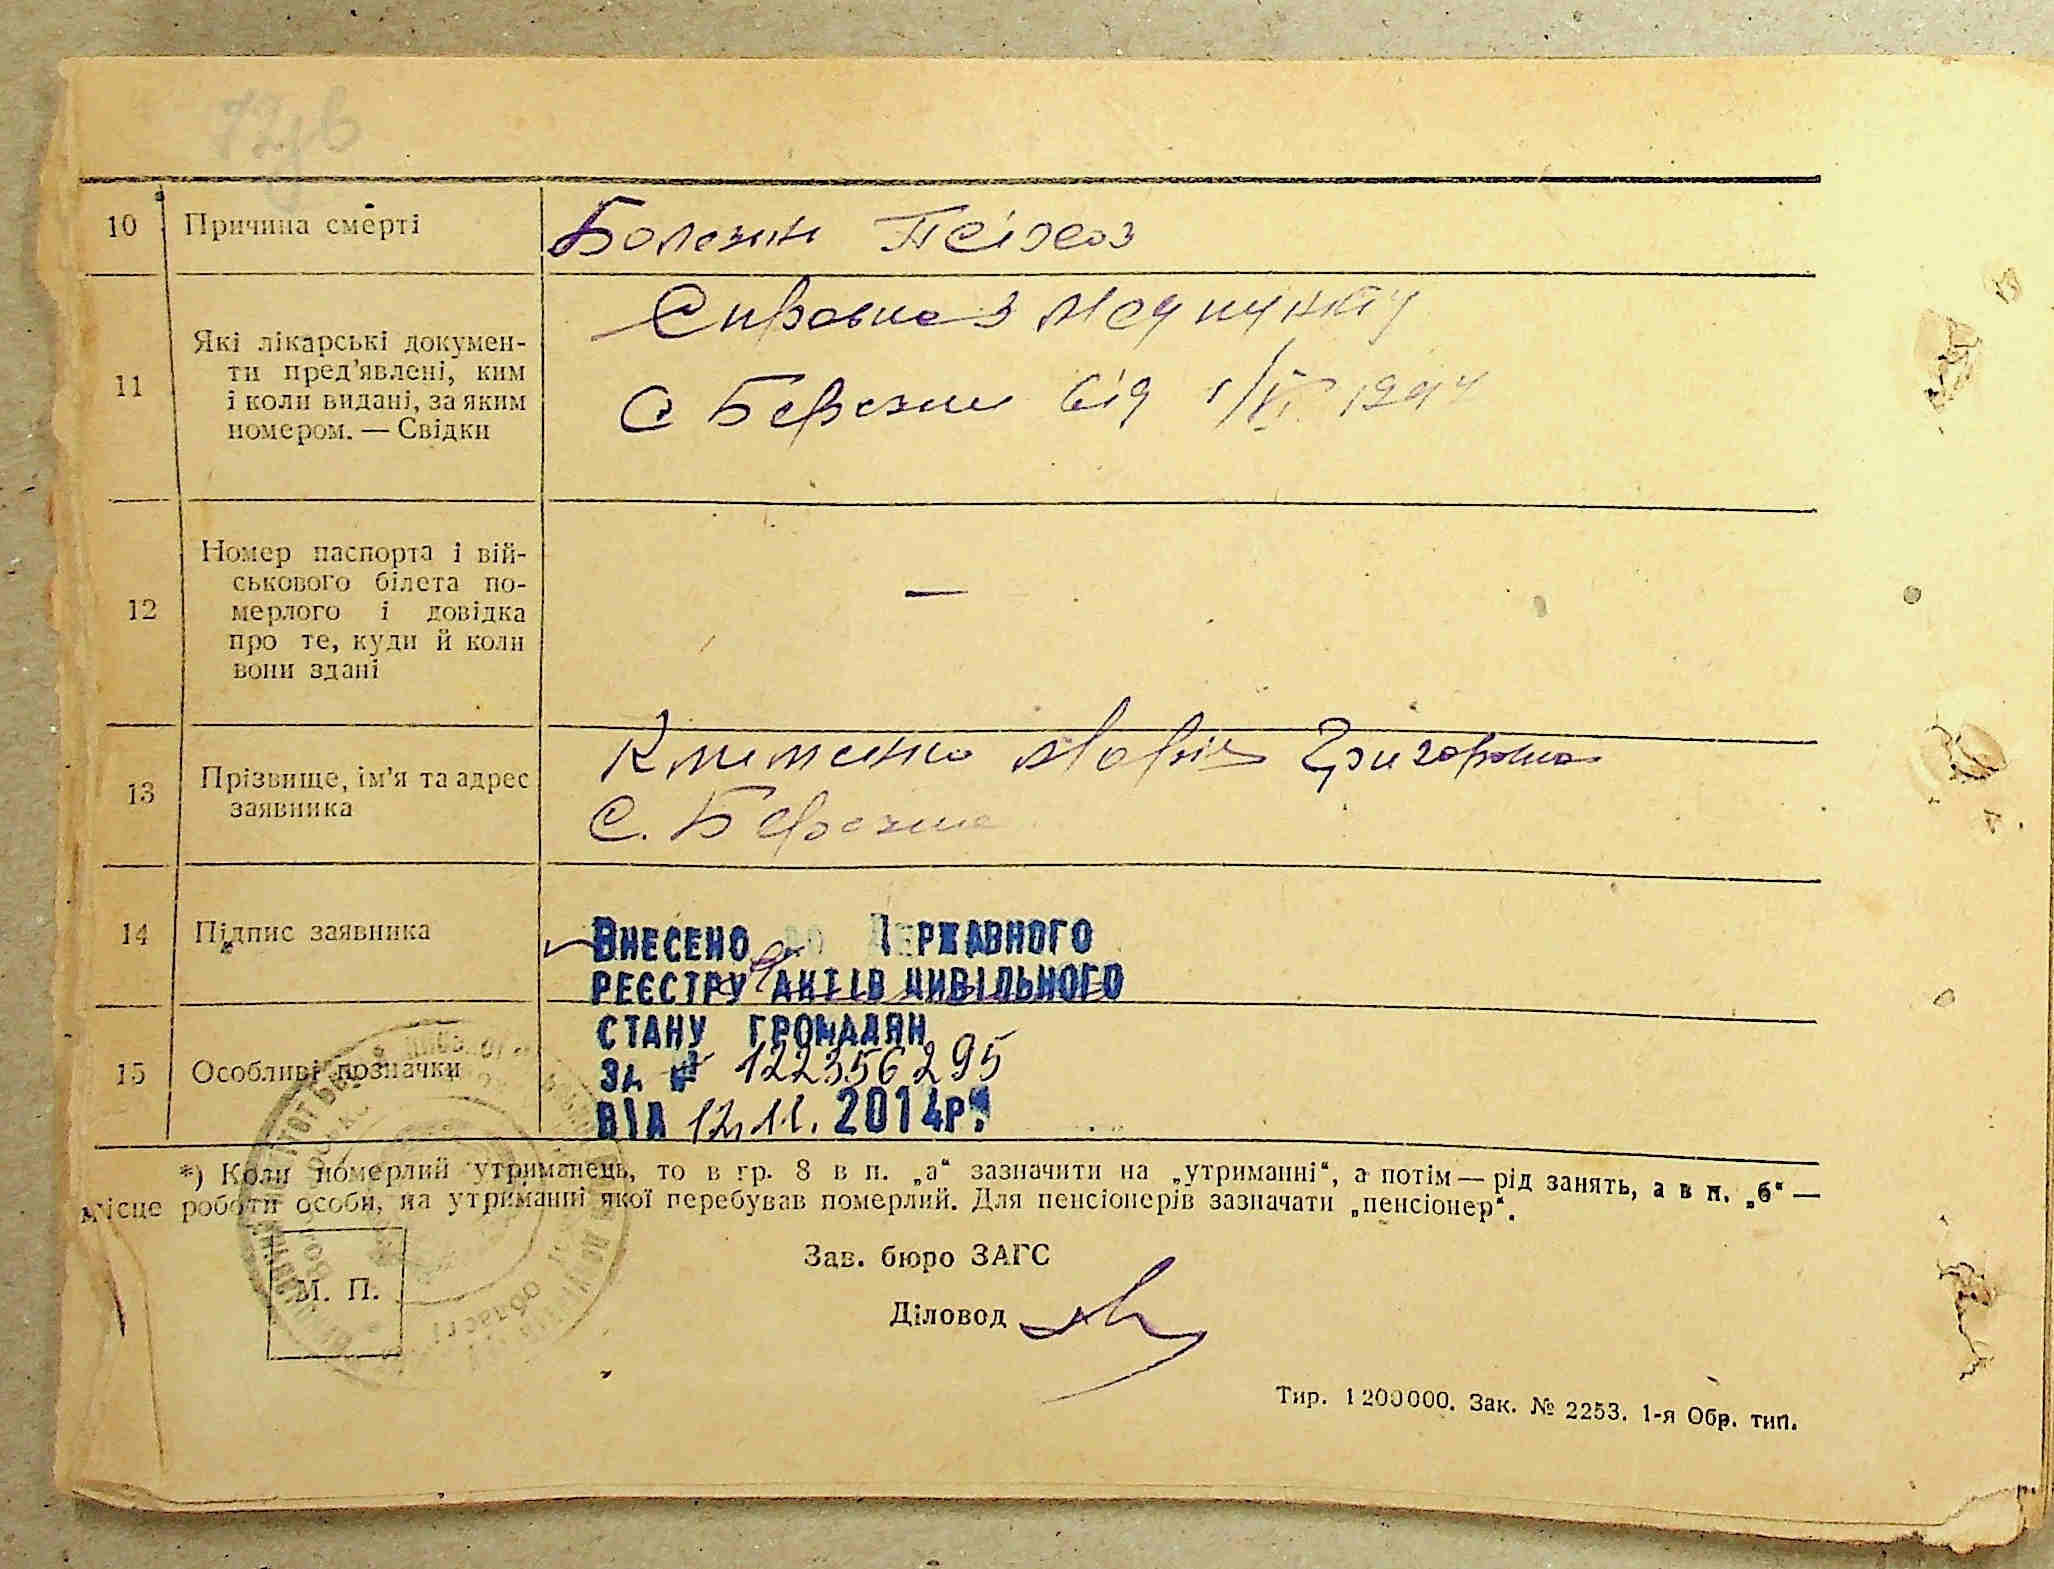 72зв
10 Причина смерті Болезни Псіхоз
11 Які лікарські докумен-
ти пред'явлені, ким
і коли видані, за яким
номером. — Свідки
Справка з медпункту
с Березне від 1/VI 1944
12 Номер паспорта і вій-
ськового білета по-
мерлого і довідка
про те, куди й коли
вони здані
—
13 Прізвище, ім'я та адрес
заявника
Клименко Марія Григоровна
с. Березне
14 Підпис заявника
Внесено до Державного
реєстру актів цивільного
стану громадян
15 Особливі позначки
за № 122356295
від 12.11. 2014р.
*) Коли померлий утриманець, то в гр. 8 в п. „а“ зазначити на „утриманні“, а потім — рід занять, а в п. „б“ —
місце роботи особи, на утриманні якої перебував померлий. Для пенсіонерів зазначати „пенсіонер“.
Зав. бюро ЗАГС
М. П.
Діловод
Тир. 1200000. Зак. № 2253. 1-я Обр. тип.